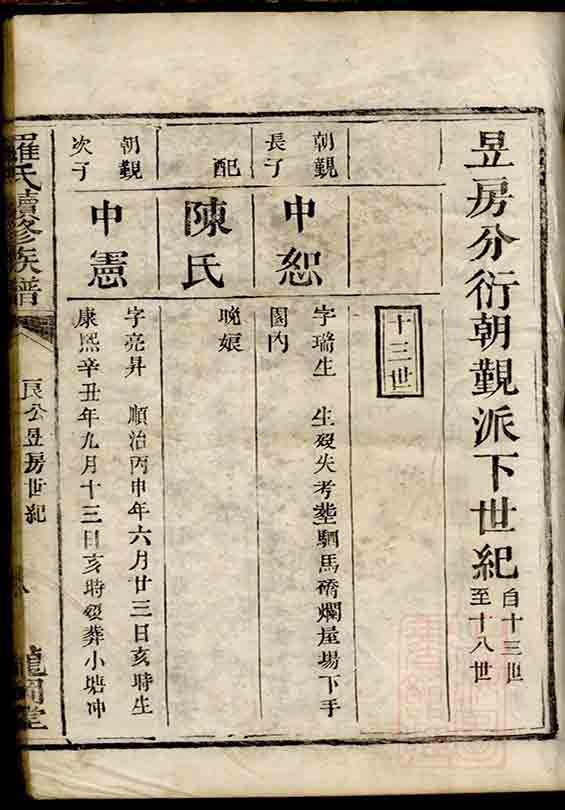 昱房分衍朝覲派下世紀
自十三世
至十八世
十三世
朝覲
長子
申恕
字瑞生 生殁失考塟駟馬礄爛屋塲下手
園內
配
陳氏
晚娘
朝覲
次子
申憲
字亮昇 順治丙申年六月廿三日亥時生
康熙辛丑年九月十三日亥時殁葬小塘冲
羅氏續修族譜
良公昱房世紀